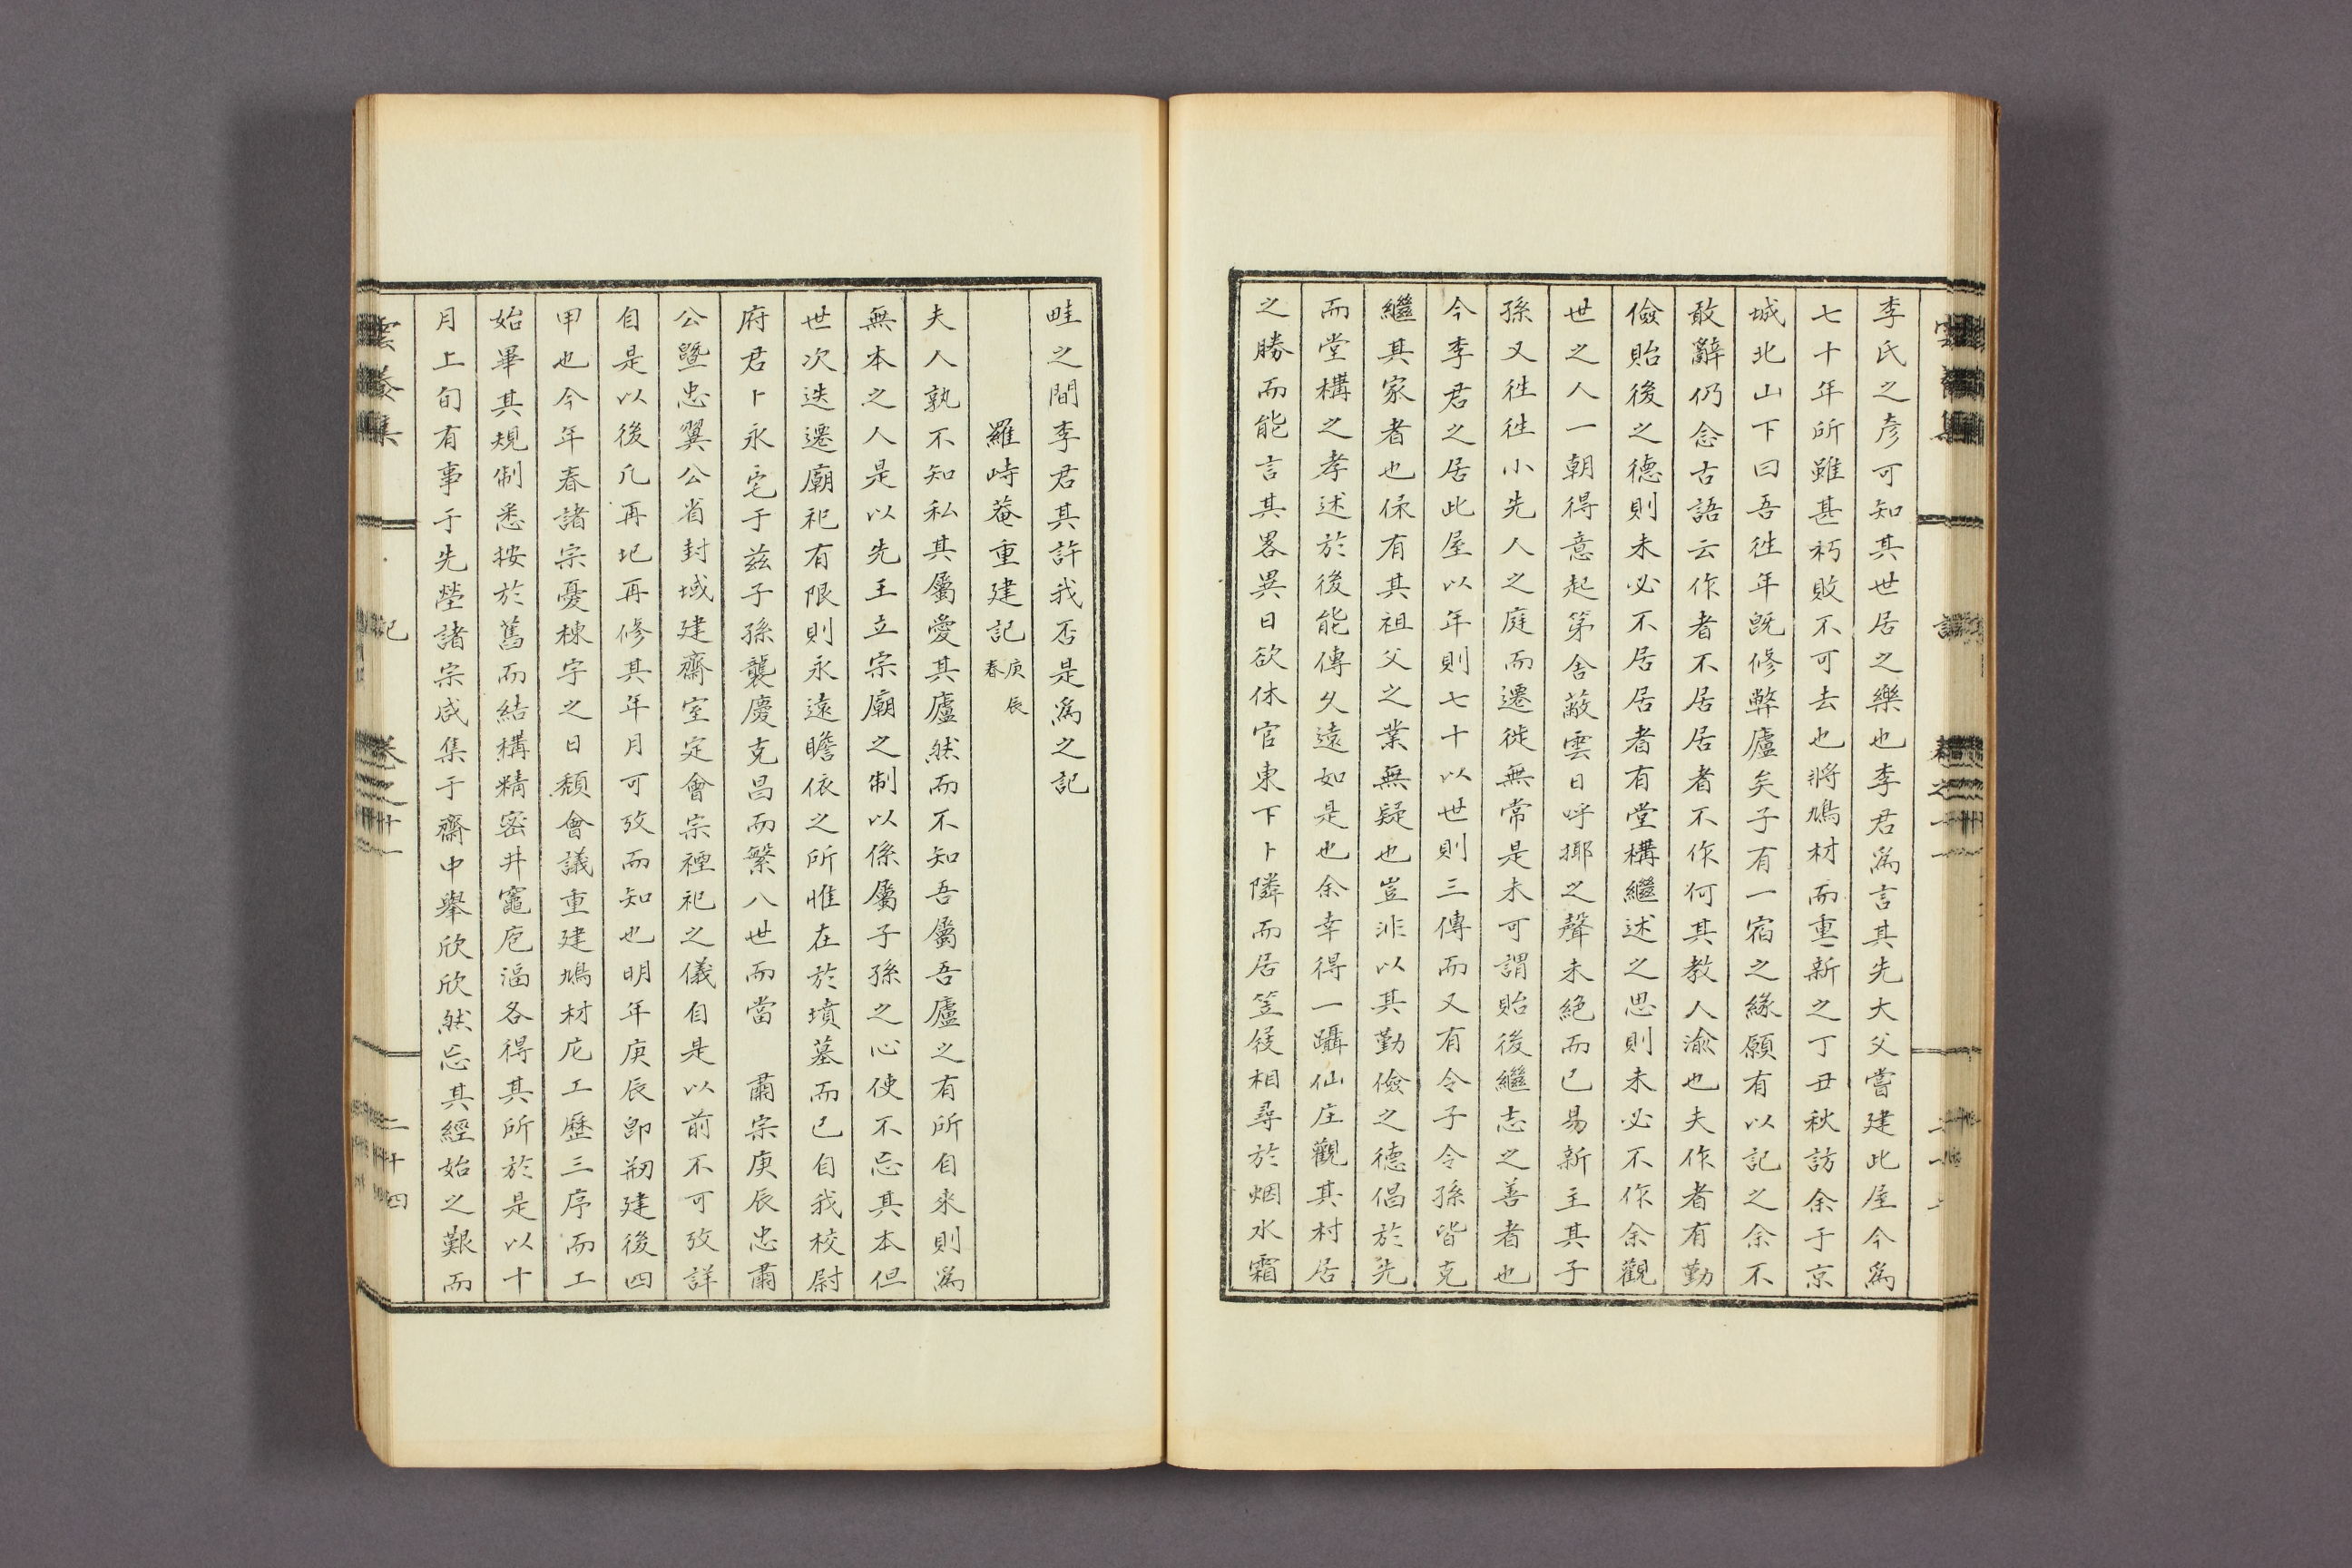 李氏之彦可知其世居之樂也李君爲言其先大父嘗建此屋今爲
七十年所雖甚朽敗不可去也將鳩材而重新之丁丑秋訪余于京
城北山下曰吾徃年旣修弊廬矣子有一宿之緣願有以記之余不
敢辭仍念古語云作者不居居者不作何其教人渝也夫作者有勤
儉貽後之德則未必不居居者有堂構繼述之思則未必不作余觀
世之人一朝得意起第舍蔽雲日呼揶之聲未絶而已易新主其子
孫又徃徃小先人之庭而遷徙無常是未可謂貽後繼志之善者也
今李君之居此屋以年則七十以世則三傳而又有令子令孫皆克
繼其家者也保有其祖父之業無疑也豈非以其勤儉之德倡於先
而堂構之孝述於後能傳久遠如是也余幸得一躡仙庄觀其村居
之勝而能言其畧異日欲休官東下卜隣而居笠屐相尋於烟水霜
畦之間李君其許我否是爲之記
羅峙菴重建記 庚辰春
夫人孰不知私其屬愛其廬然而不知吾屬吾廬之有所自來則爲
無本之人是以先王立宗廟之制以係屬子孫之心使不忘其本但
世次迭遷廟祀有限則永遠瞻依之所惟在於墳墓而已自我校尉
府君卜永宅于玆子孫襲慶克昌而繁八世而當 肅宗庚辰忠肅
公曁忠翼公省封域建齋室定會宗禋祀之儀自是以前不可攷詳
自是以後凡再圮再修其年月可攷而知也明年庚辰卽刱建後四
甲也今年春諸宗憂棟宇之日頹會議重建鳩材庀工歷三序而工
始畢其規制悉按於舊而結構精密井竈庖湢各得其所於是以十
月上旬有事于先塋諸宗咸集于齋中擧欣欣然忘其經始之艱而
集 記 卷之十一 二十四